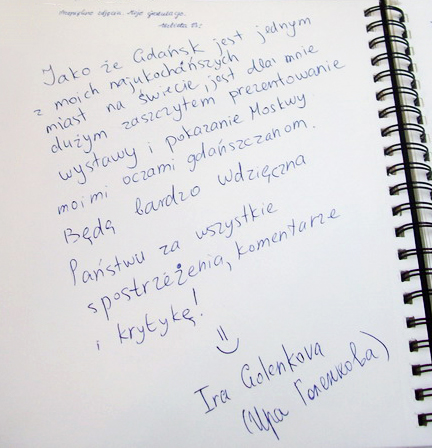 Jako że Gdańsk jest jednym
z moich najukochańszych
miast na świecie, jest dla mnie
dużym zaszczytem prezentowanie
wystawy i pokazanie Moskwy
moimi oczami gdańszczanom.
Będę bardzo wdzięczna
Państwu za wszystkie
spostrzeżenia, komentarze
i krytykę!
=)
Ira Golenkova
(Ира Голенкова)